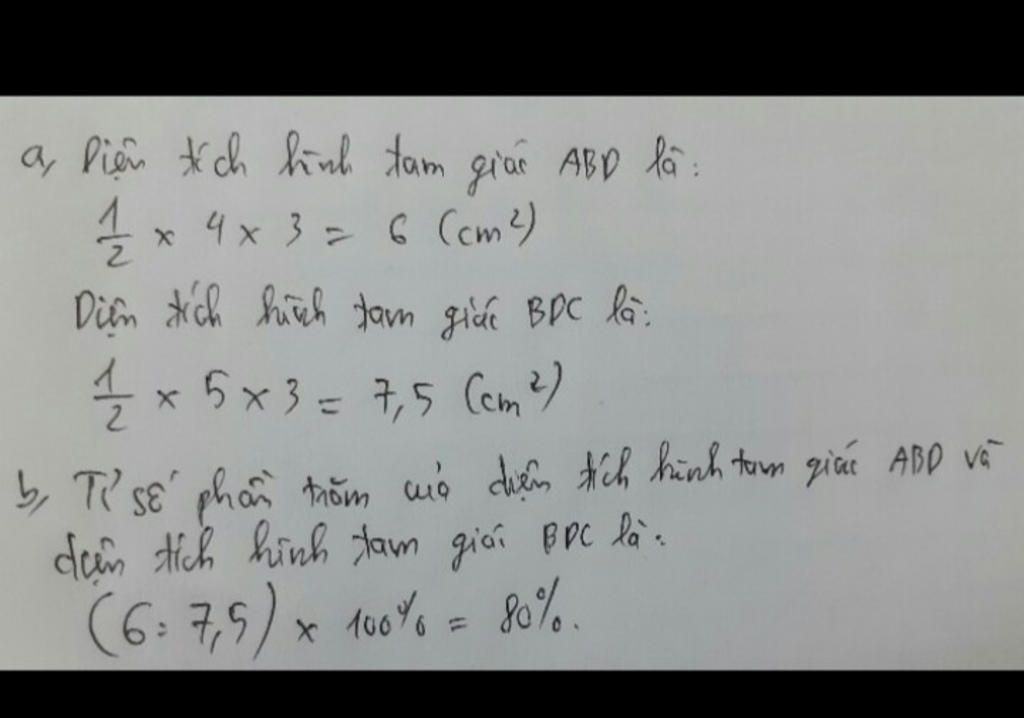 a, Diện tích hình tam giác ABD là:
1/2 × 4 × 3 = 6 (cm²)
Diện tích hình tam giác BDC là:
1/2 × 5 × 3 = 7,5 (cm²)
b, Tỉ số phần trăm của diện tích hình tam giác ABD và
diện tích hình tam giác BDC là:
(6 : 7,5) × 100% = 80%.